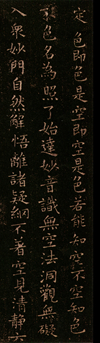 定色即色是空即空是色若能知空不空知色
不色名為照了始達妙音識無空法洞觀無礙
入眾妙門自然解悟離諸疑網不著空見清靜六